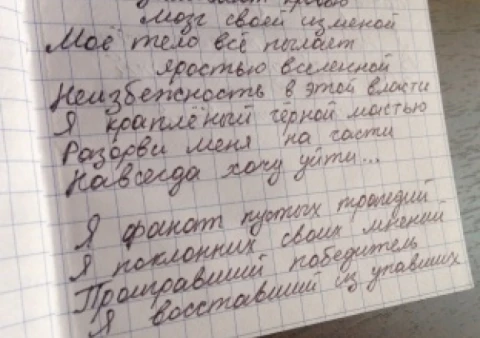 кровью
Мозг своей изменой
Моё тело всё пылает
яростью вселенной
Неизбежность в этой власти
Я краплёный чёрной мастью
Разорви меня на части
Навсегда хочу уйти...
Я фанат пустых трагедий
Я поклонник своих мнений
Проигравший победитель
Я восставший из упавших